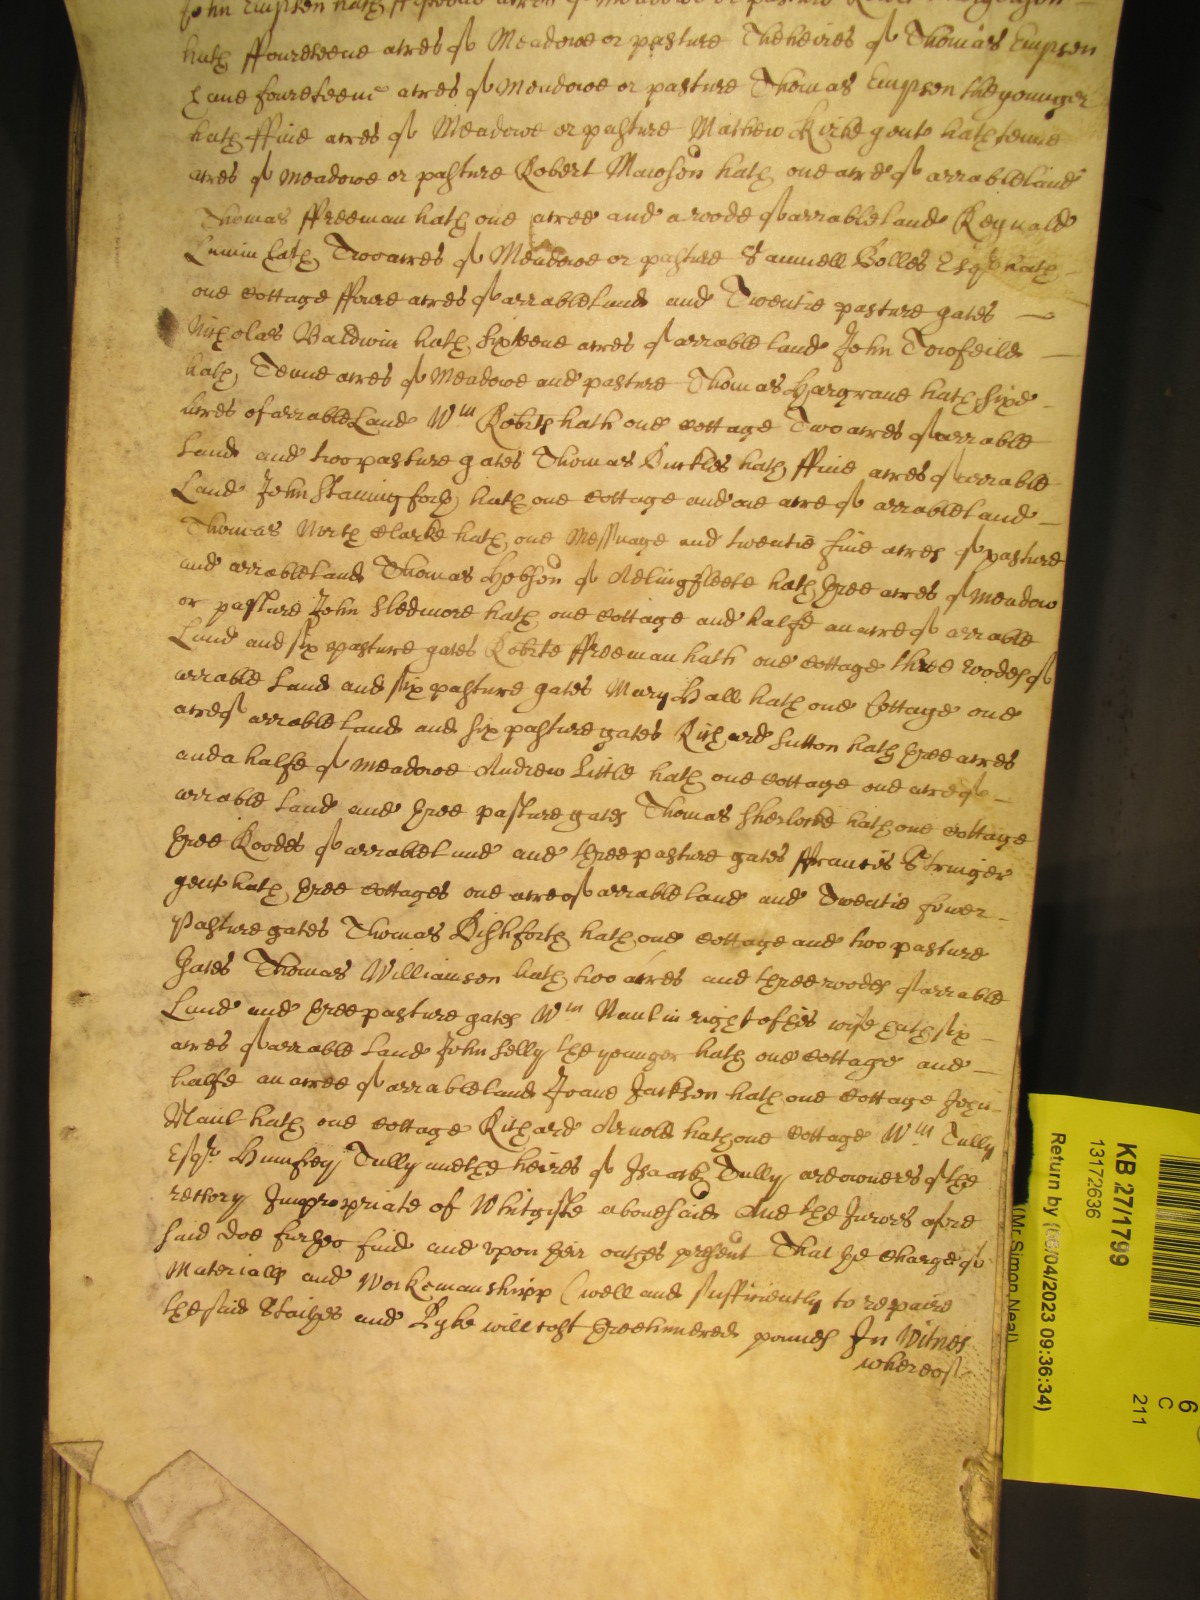 John Empson hath acres of Meadowe or pasture
hath ffoureteene acres of Meadowe or pasture The heires of Thomas Empson
have foureteene acres of Meadowe or pasture Thomas Empson the younger
hath ffive acres of Meadowe or pasture Mathew Kirke gent hath tenne
acres of Meadowe or pasture Robert Mawson hath one acre of arrable land
Thomas ffreeman hath one acree and a roode of arrable land Reynald
hath Two acres of Meadowe or pasture Samuell Bolles Esqr hath
one Cottage ffoure acres of arrable land and Twentie pasture gates
Nicholas Baldwin hath sixteene acres of arrable land John Twofeild
hath Tenne acres of Meadowe and pasture Thomas Hargrave hath sixe
acres of arrable Land Wm Robts hath one Cottage Two acres of arrable
Land and two pasture gates Thomas hath ffive acres of arrable
Land John Staningforth hath one Cottage and one acre of arrable land
Thomas North Clarke hath one Messuage and twentie five acres of pasture
and arrable land Thomas Hobson of Adlingfleete hath three acres of meadow
or pasture John Sledmore hath one Cottage and halfe an acre of arrable
Land and six pasture gates Robte ffreeman hath one Cottage three roodes of
arrable Land and six pasture gates Mary Hall hath one Cottage one
acre of arrable land and six pasture gates Richard Sutton hath three acres
and a halfe of meadowe Andrew Little hath one Cottage one acre of
arrable Land and three pasture gates Thomas Sherlocke hath one Cottage
three Roodes of arrable Land and three pasture gates ffrancis Stringer
gent hath three Cottages one acre of arrable land and Twentie fower
Pasture gates Thomas Rishforth hath one Cottage and two pasture
Gates Thomas Williamson hath two acres and three roodes of arrable
Land and three pasture gates Wm Naul in right of his wife hath six
acres of arrable Land John Selly the younger hath one Cottage and
halfe an acree of arrable land Joane Jackson hath one Cottage John
Maul hath one Cottage Richard Arnold hath one Cottage Wm Tully
Esqr Humfrey Tully and the heires of Isaack Tully are owners of the
rectory Impropriate of Whitgift abovesaid And the Jurors afore
said doe further find and upon their oathes present That the Charge of
Materialls and Workemanshipp (well and sufficiently to repaire
the said Staithes and Dyke will cost three hundred pounds In Witnes
whereof
KB 27/1799
13172636
Return by (06/04/2023 09:36:34)
(Mr Simon Neal)
6
C
211